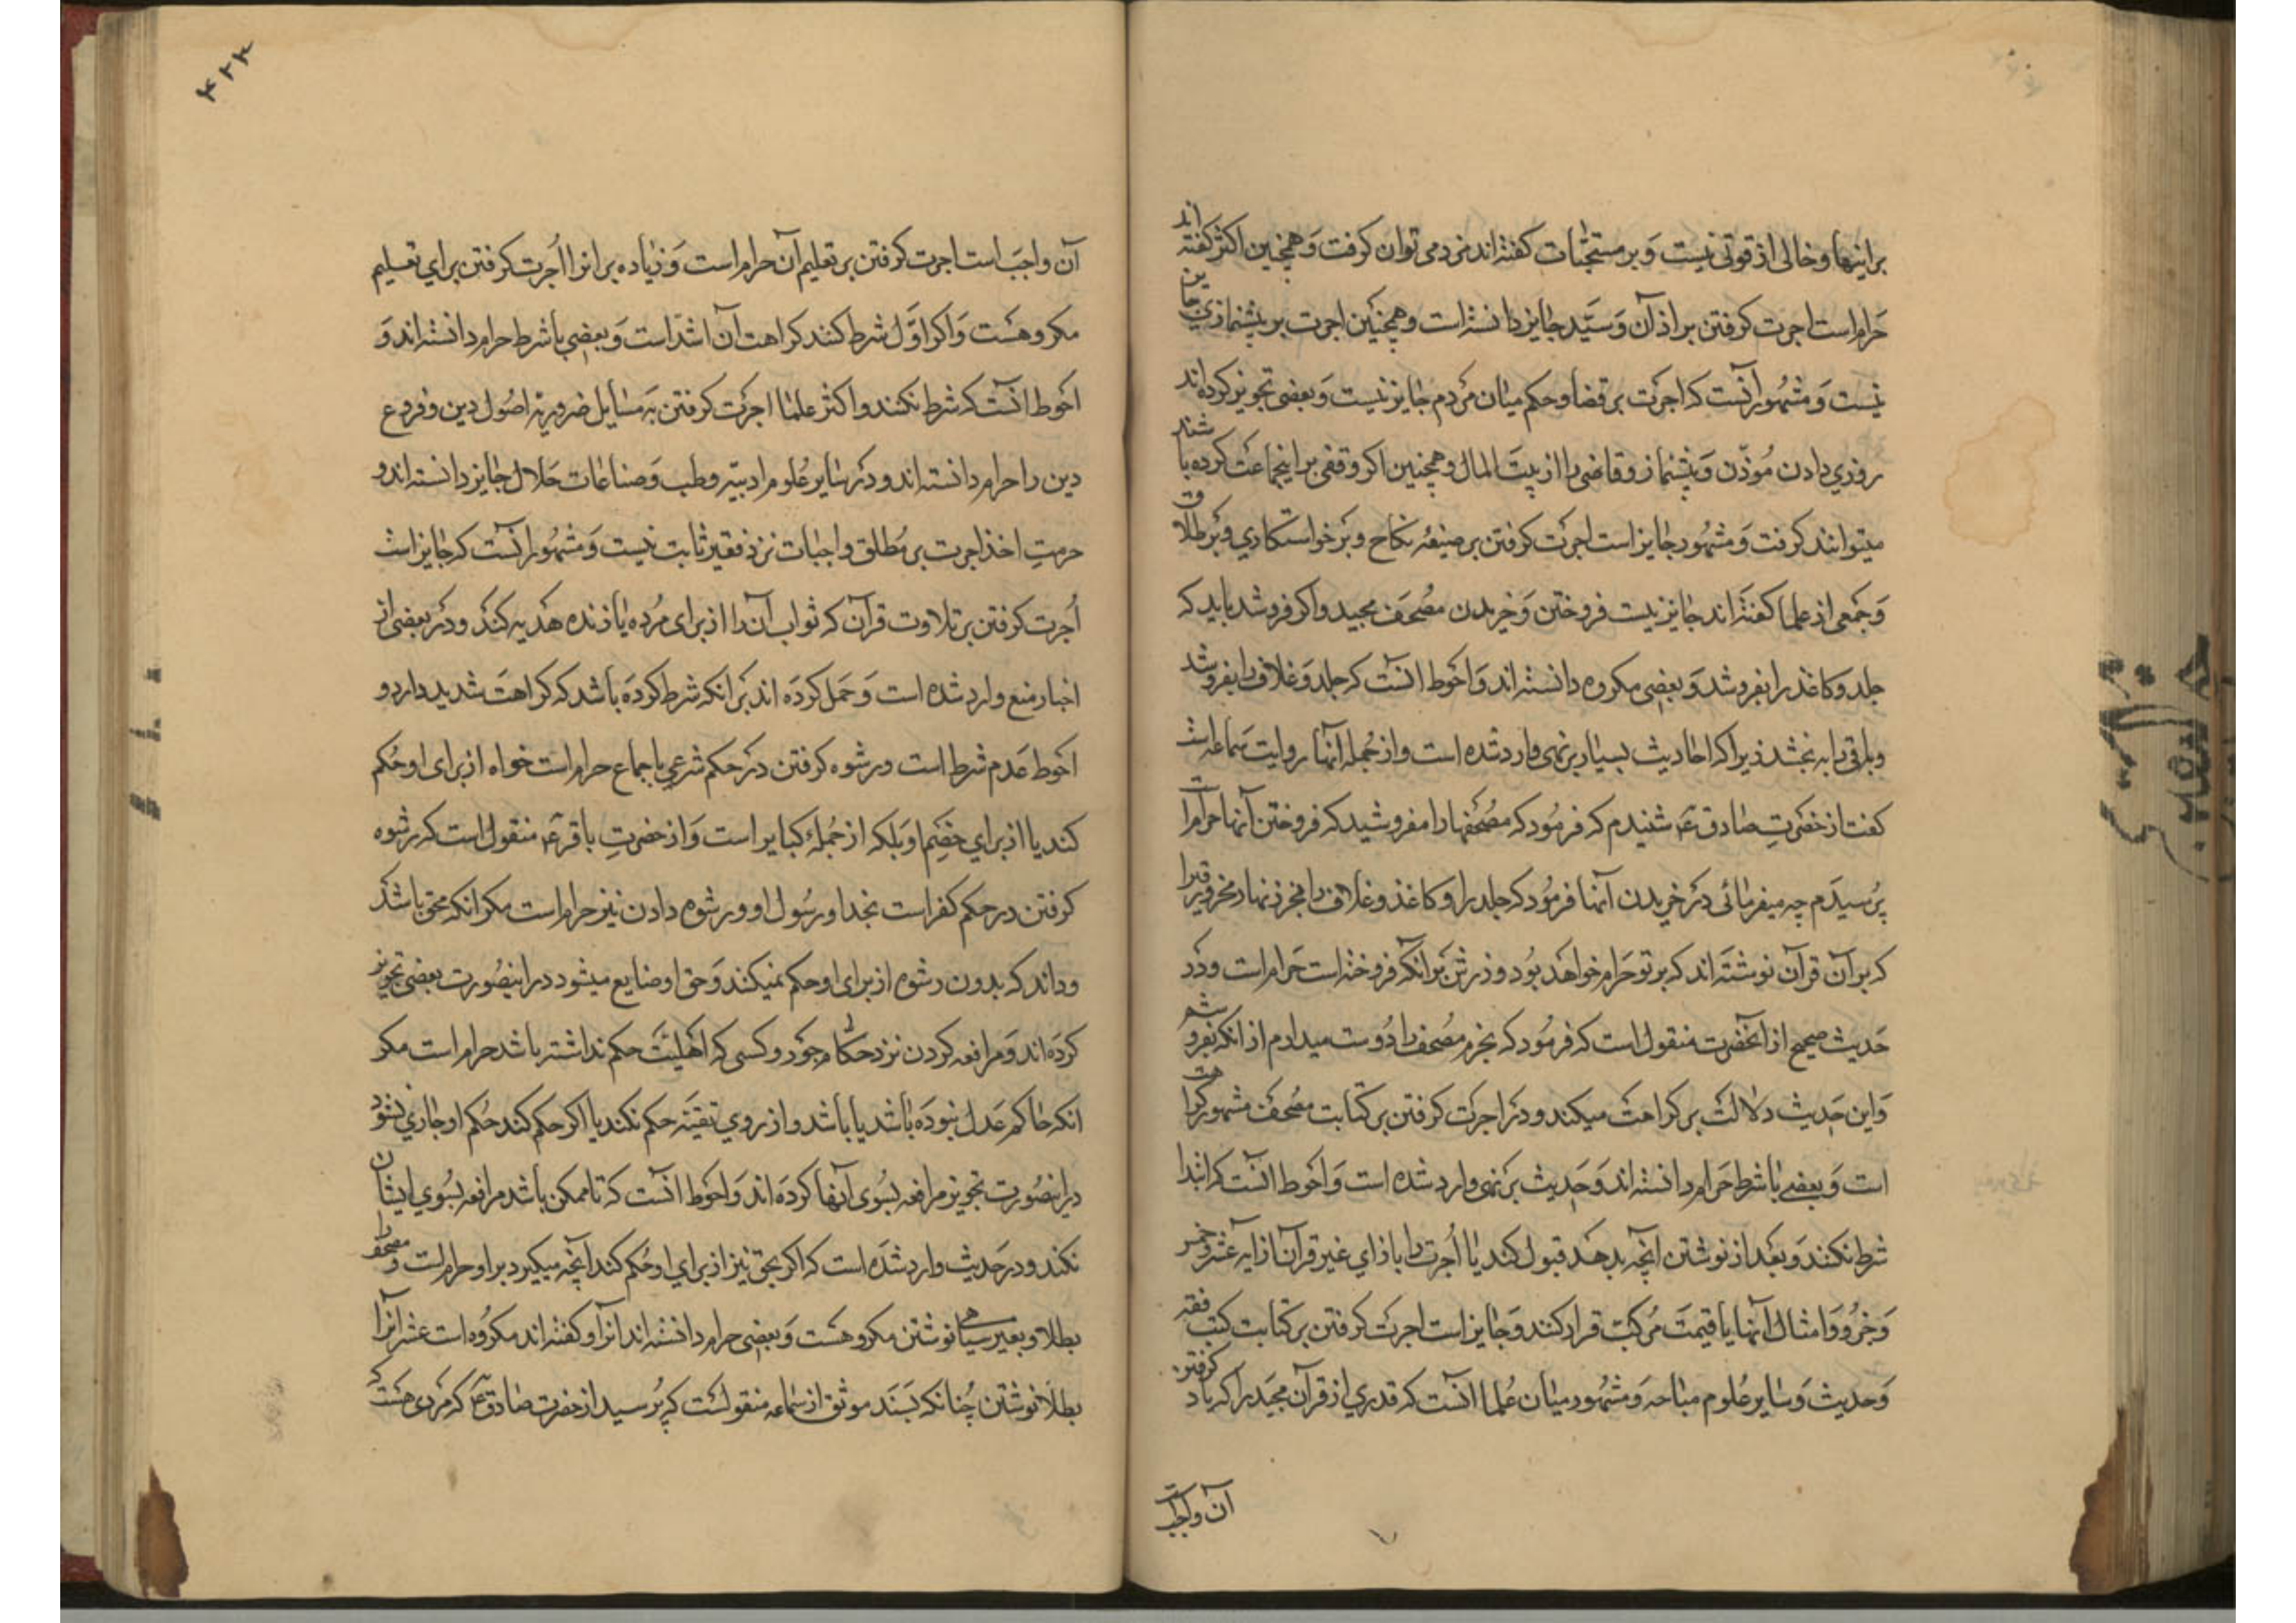 بر اینها و خالی از قوتی نیست و بر مستحبّات گفته‌اند مزد می توان گرفت و همچنین اکثر گفته‌اند
حرام است اجرت گرفتن بر اذان و سیّد جایز دانسته است و همچنین اجرت بر پیشنمازی جایز
نیست و مشهور آنست که اجرت بر قضا و حکم میان مردم جایز نیست و بعضی تجویز کرده‌اند
روزی دادن مؤذّن و پیشنماز و قاضی را از بیت المال و همچنین اگر وقفی بر اینجماعت کرده باشند
میتوانند گرفت و مشهور جایز است اجرت گرفتن بر صیغه نکاح و بر خواستکاری و بر طلاق
و جمعی از علما گفته‌اند جایز نیست فروختن و خریدن مصحف مجید و اگر فروشد باید که
جلد و کاغذ را بفروشد و بعضی مکروه دانسته‌اند و احوط انست که جلد و غلاف را بفروشد
و باقی را به بخشد زیرا که احادیث بسیار بر نهی وارد شده است و از جمله آنها روایت سماعه است
گفت از حضرت صادق ع شنیدم که فرمود که مصحفها را مفروشید که فروختن آنها حرام است
پرسیدم چه میفرمائی در خریدن آنها فرمود که جلد را و کاغذ و غلاف را بخر زنهار مخر ورق را
که بر آن قرآن نوشته‌اند که بر تو حرام خواهد بود و زرش بر آنکه فروخته است حرام است و در
حدیث صحیح از آنحضرت منقول است که فرمود که بخرم مصحف را دوست میدارم از انکه بفروشم
و این حدیث دلالت بر کراهت میکند و در اجرت گرفتن بر کتابت مصحف مشهور کراهت
است و بعضی با شرط حرام دانسته‌اند و حدیث بر نهی وارد شده است و احوط انست که ابتدا
شرط نکنند و بعد از نوشتن آنچه بدهد قبول کند یا اجرت را بازای غیر قرآن از آیه عشر و خمس
و جزو و امثال آنها یا قیمت مرکب قرار کنند و جایز است اجرت گرفتن بر کتابت کتب فقه
و حدیث و سایر علوم مباحه و مشهور میان علما انست که قدری از قرآن مجید را که یاد گرفتن
آن واجب است
۴۲۲
آن واجب است اجرت گرفتن بر تعلیم آن حرام است و زیاده بر انرا اجرت گرفتن برای تعلیم
مکروهست و اگر اوّل شرط کنند کراهت آن اشدّ است و بعضی با شرط حرام دانسته‌اند و
احوط انست که شرط نکنند و اکثر علما اجرت گرفتن به مسایل ضروریه اصول دین و فروع
دین را حرام دانسته‌اند و در سایر علوم ادبیّه و طب و صناعات حلال جایز دانسته‌اند و
حرمت اخذ اجرت بر مطلق واجبات نزد فقیر ثابت نیست و مشهور آنست که جایز است
اجرت گرفتن بر تلاوت قرآن که ثواب آن را از برای مرده یا زنده هدیه کند و در بعضی از
اخبار منع وارد شده است و حمل کرده اند بر انکه شرط کرده باشد که کراهت شدید دارد و
احوط عدم شرط است و رشوه گرفتن در حکم شرعی باجماع حرام است خواه از برای او حکم
کند یا از برای خصم او بلکه از جمله کبایر است و از حضرت باقر ع منقول است که رشوه
گرفتن در حکم کفر است بخدا و رسول او و رشوه دادن نیز حرام است مگر انکه محق باشد
و داند که بدون رشوه از برای او حکم نمیکند و حق او ضایع میشود در اینصورت بعضی تجویز
کرده‌اند و مرافعه کردن نزد حکام جور و کسی که اهلیت حکم نداشته باشد حرام است مگر
انکه حاکم عدل نبوده باشد یا باشد و از روی تقیّه حکم نکند یا اگر حکم کند حکم او جاری نشود
در اینصورت تجویز مرافعه بسوی آنها کرده‌اند و احوط انست که تا ممکن باشد مرافعه بسوی ایشان
نکند و در حدیث وارد شده است که اگر بحق نیز از برای او حکم کند آنچه میگیرد بر او حرام است و مصحف را
بطلا و بغیر سیاهی نوشتن مکروهست و بعضی حرام دانسته‌اند انرا و گفته‌اند مکروه است عشر انرا
بطلا نوشتن چنانکه بسند موثق از سماعه منقولست که پرسید از حضرت صادق ع که مردی هست که